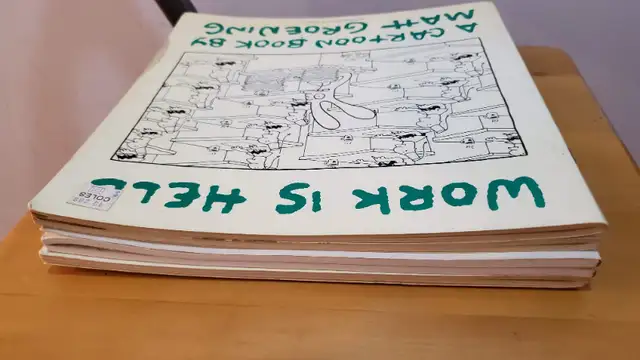 WORK IS HELL
COLES
A CARTOON BOOK BY
MATT GROENING